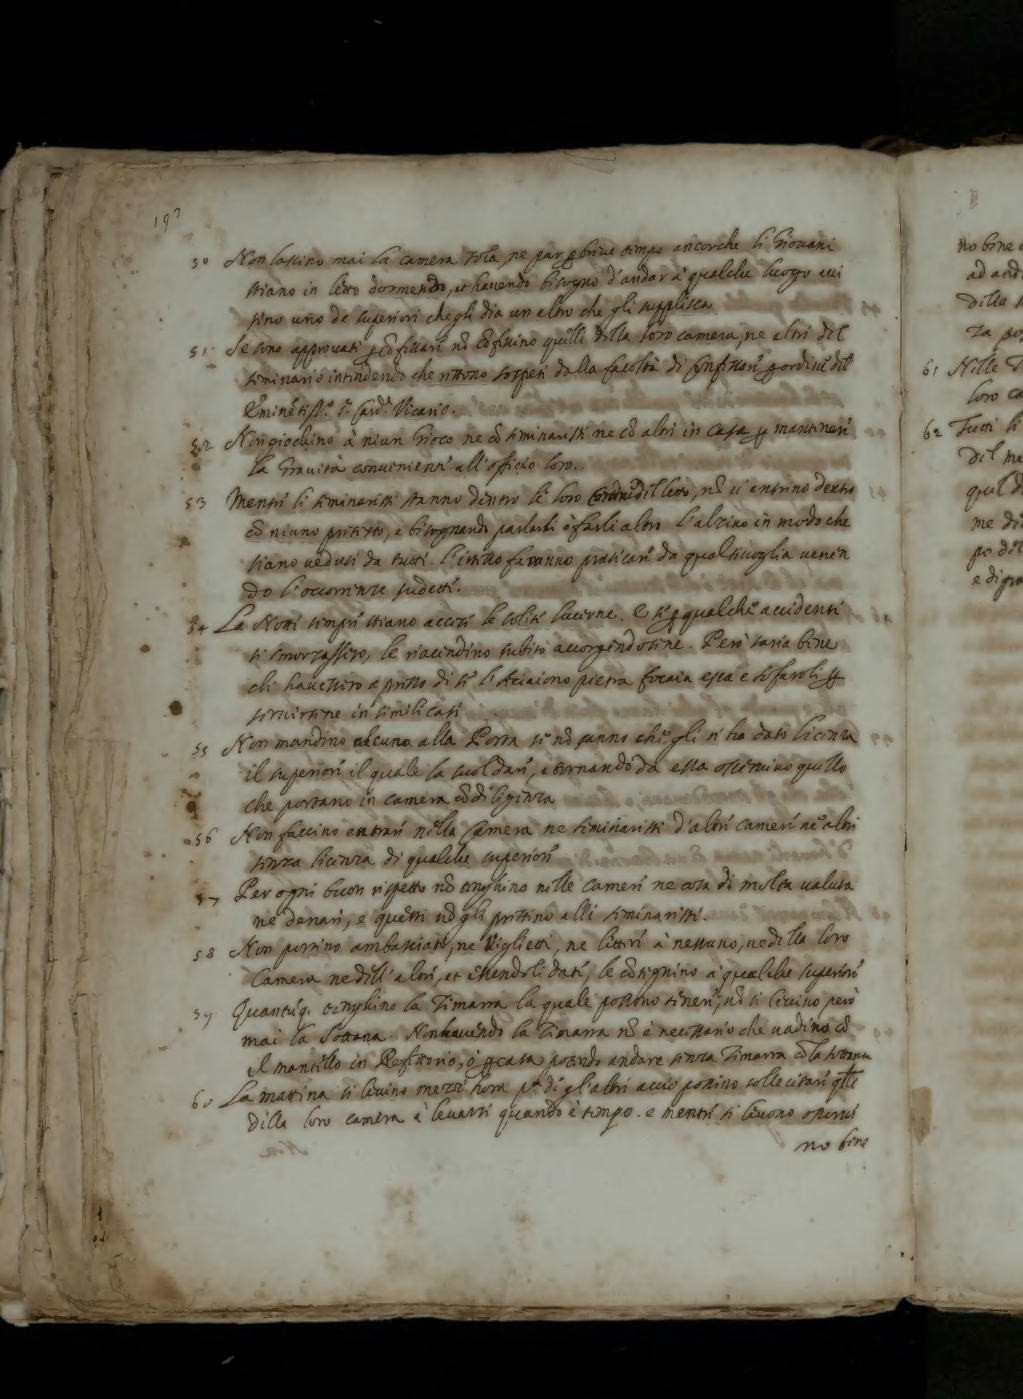 197
50 Non lascino mai la camera sola, ne par p brive tempo ancorche li Giovani
stiano in letto dormendo, et havendo bisogno d'andar à qualche luogo vi
sino uno de superiori che gli dia un altro che gli supplisca
51 Se sono approvati p cõfessari nõ cõfessino quelli della loro camera, ne altri del
seminario intendendo che restono sospesi dalla facoltà di Confessari p ordine del
Emine͂tiss.o S.r Card. Vicario.
52 Non giochino à niun Gioco ne cõ seminaristi ne cõ altri in casa p mantineri
la Gravità convenienti all'officio loro.
53 Mentri li seminaristi stanno dentro le loro cortine dil letto, nõ vi entrino dentro
cõ niuno pritesto, e bisognando parlarli ò farli altro l'alzino in modo che
siano veduti da tutti. l'istesso faranno praticari da qualsivoglia venen
do l'occorrenze sudetti.
54 La Notti sempri stiano accesi le soliti lucerne. E si p qualche accidenti
si smorzassero, le riacendino subito accorgendosene. Però saria bene
chi havessero apresso di sè l'Aciaiono pietra focaia esca e sofaroli p
servirsene in simili casi
55 Non mandino alcuno alla Porta si nõ sanno chi gli n'ha dato licenza
il superiori il quale la suol dari, e tornando da essa osservino quello
che portano in camera cõ diligenza
56 Non faccino entrari nella Camera ne seminaristi d'altri cameri ne altri
senza licenza di qualche superiori
57 Per ogni buon rispetto nõ tenghino nelle cameri ne cosa di molta valuta
ne denari, e questi nõ gli prestino alli seminaristi.
58 Non portino ambasciate, ne Viglietti, ne lettiri à nessuno, ne di la loro
Camera ne dell'altri, et essendoli dati, le cõsignino a qualche superiori
59 Quantuq. tenghino la Zimarra la quale possono tineri, nõ si levino però
mai la Sottana. Non havendo la Zimarra nõ è necessario che vadino cõ
il mantello in Refettorio, ò p casa potendo andare senza Zimarra cõ la sottana
60 La mattina si levino mezz'hora p.a di gl'altri acciò possino sollecitari q.lli
della loro camera à levarsi quando è tempo. e mentri si levono osservi
no bene
no bene
ad and
della s
za po
61 Nelle
loro ca
62 Tutti li
del ma
quel d
me di
po del
e di pra